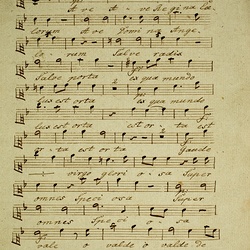 Ave Ave Regina Cœ
lorum Ave Domina Ange
lorum Salve radix
Salve porta ex qua mundo
lux est orta ex qua mundo
lux est orta est orta est
orta est orta Gaude
virgo gloriosa Super
omnes Speciosa Super
omnes Speciosa
vale o valde valde